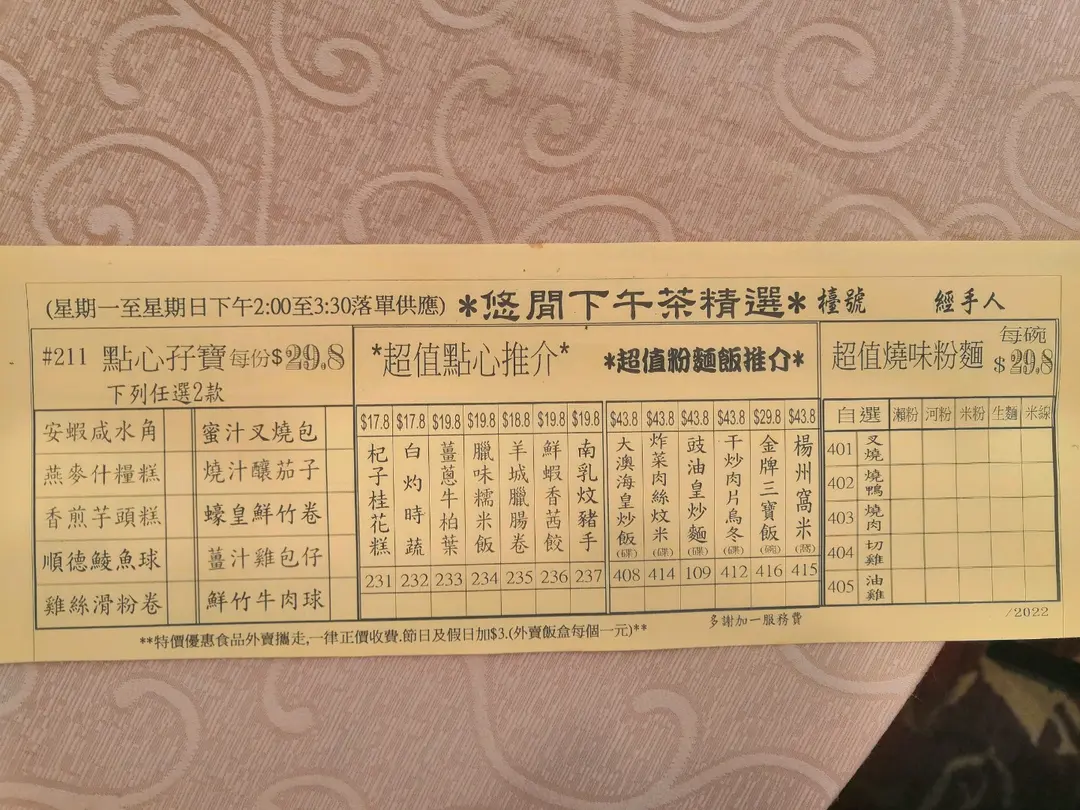 (星期一至星期日下午2:00至3:30落單供應) *悠閒下午茶精選* 檯號 經手人
#211 點心孖寶 每份$29.8
下列任選2款
安蝦咸水角 蜜汁叉燒包
燕麥什糧糕 燒汁釀茄子
香煎芋頭糕 蠔皇鮮竹卷
順德鯪魚球 薑汁雞包仔
雞絲滑粉卷 鮮竹牛肉球
*超值點心推介* *超值粉麵飯推介*
$17.8 $17.8 $19.8 $19.8 $18.8 $19.8 $19.8 $43.8 $43.8 $43.8 $43.8 $29.8 $43.8
杞子桂花糕
白灼時蔬
薑蔥牛柏葉
臘味糯米飯
羊城臘腸卷
鮮蝦香茜餃
南乳炆豬手
大澳海皇炒飯(碟)
炸菜肉絲炆米(碟)
豉油皇炒麵(碟)
干炒肉片烏冬(碟)
金牌三寶飯(碗)
楊州窩米(窩)
231 232 233 234 235 236 237 408 414 109 412 416 415
超值燒味粉麵 每碗$29.8
自選 瀨粉 河粉 米粉 生麵 米線
401 叉燒
402 燒鴨
403 燒肉
404 切雞
405 油雞
**特價優惠食品外賣攜走,一律正價收費.節日及假日加$3.(外賣飯盒每個一元)**
多謝加一服務費
/2022